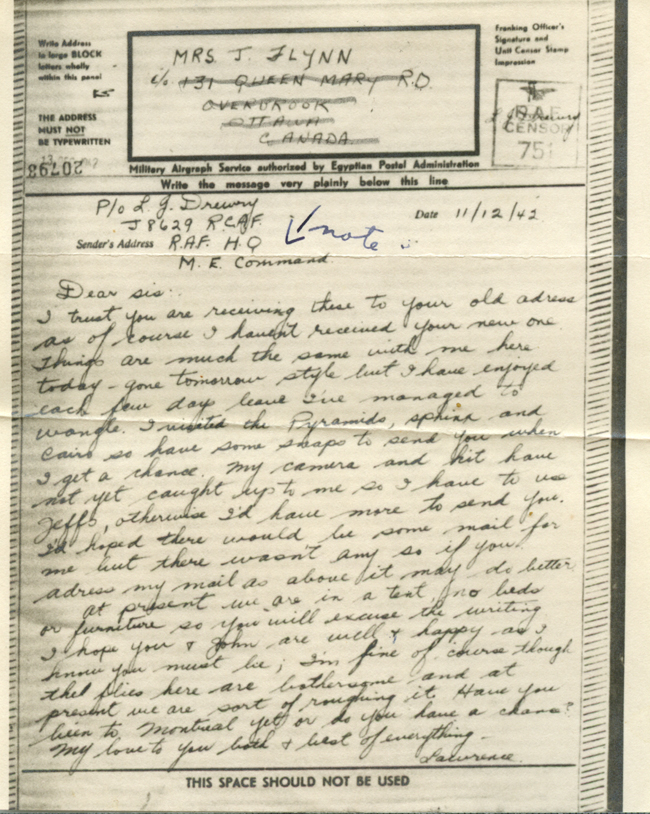 Write Address
in large BLOCK
letters wholly
within this panel
THE ADDRESS
MUST NOT
BE TYPEWRITTEN
20798
MRS J. FLYNN
c/o 131 QUEEN MARY RD.
OVERBROOK
OTTAWA
CANADA
Franking Officer's
Signature and
Unit Censor Stamp
Impression
R.A.F.
CENSOR
751
Military Airgraph Service authorized by Egyptian Postal Administration
Write the message very plainly below this line
P/o L. G. Drewry
J8629 R.C.A.F.
Sender's Address R.A.F. H.Q
M. E. Command
note
Date 11/12/42
Dear sis:
I trust you are receiving these to your old adress
as of course I haven't received your new one.
Things are much the same with me here
today - gone tomorrow style but I have enjoyed
each few days leave I've managed to
wangle. I visited the Pyramids, sphinx and
Cairo so have some snaps to send you when
I get a chance. My camera and kit have
not yet caught up to me so I have to use
Jeff's, otherwise I'd have more to send you.
I'd hoped there would be some mail for
me but there wasn't any so if you
adress my mail as above it may do better
at present we are in a tent, no beds
or furniture so you will excuse the writing
I hope you & John are well & happy as I
know you must be; I'm fine of course though
the flies here are bothersome and at
present we are sort of roughing it. Have you
been to Montreal yet or do you have a chance?
My love to you both & best of everything -
Lawrence.
THIS SPACE SHOULD NOT BE USED